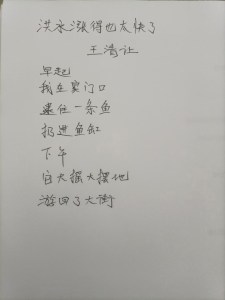 洪水涨得也太快了
王清让
早起
我在家门口
逮住一条鱼
扔进鱼缸
下午
它大摇大摆地
游回了大街